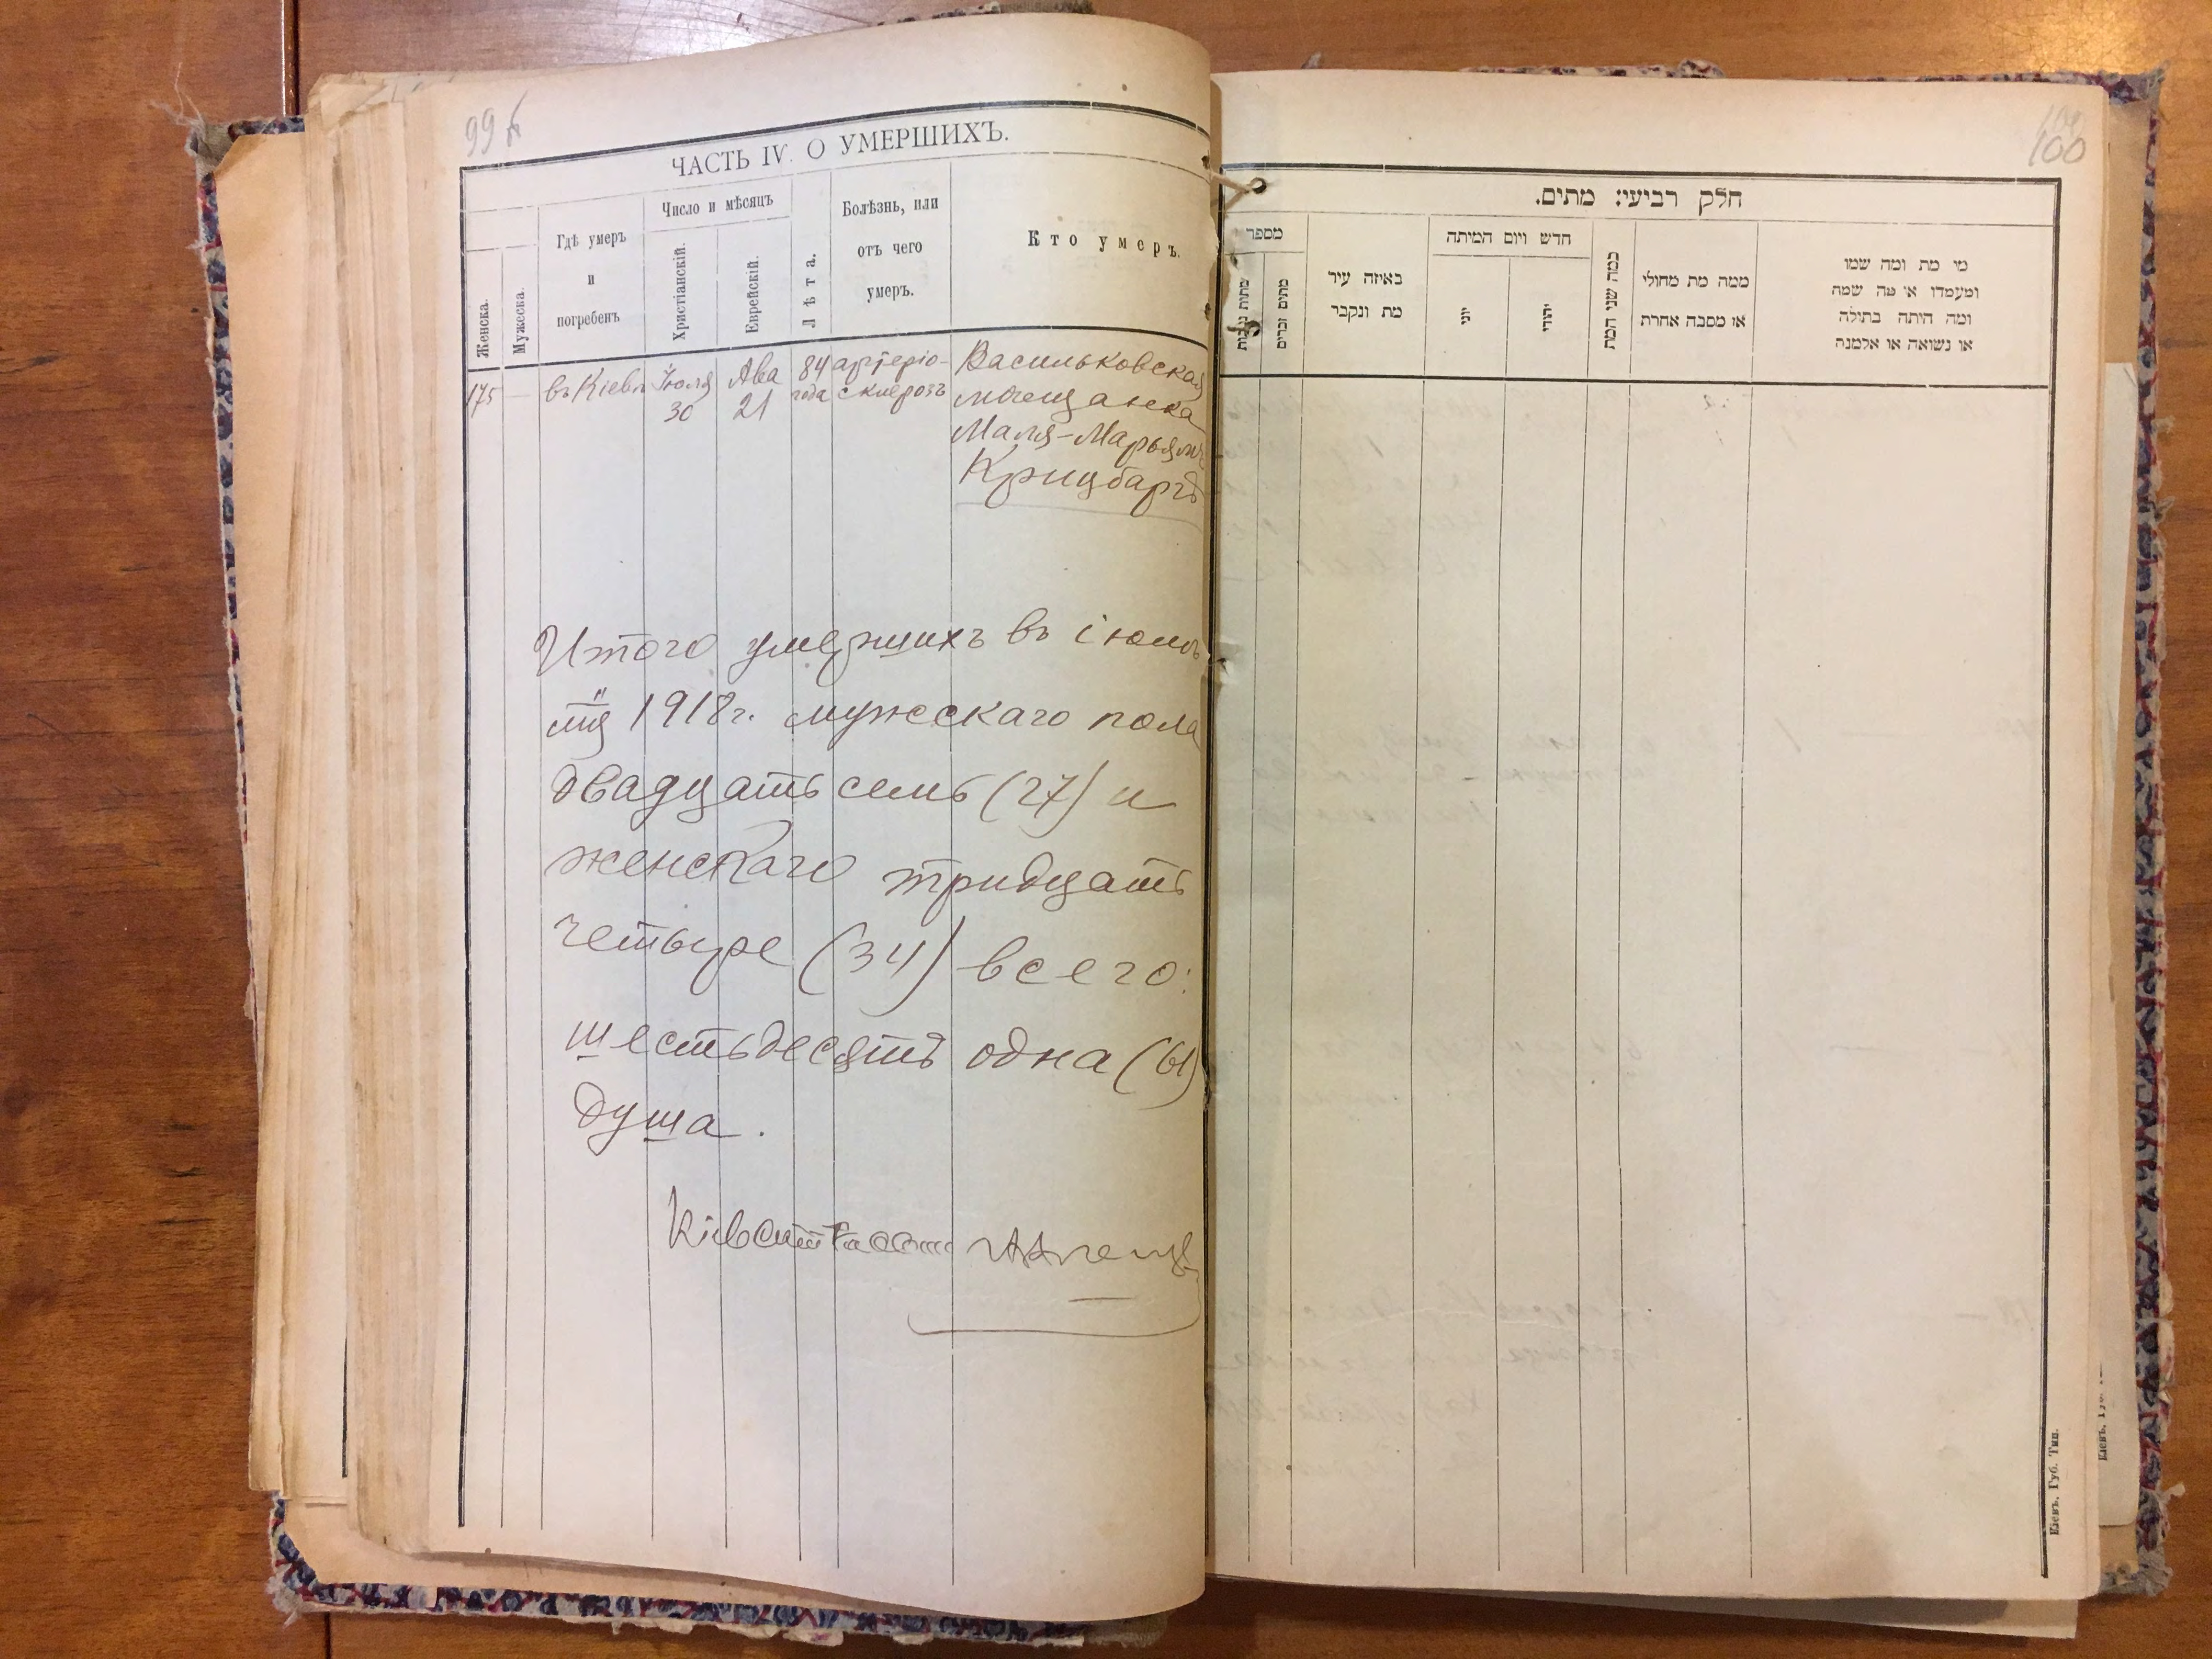 99
ЧАСТЬ IV. О УМЕРШИХЪ.
Женска.
Мужеска.
Гдѣ умеръ
и
погребенъ
Число и мѣсяцъ
Христіанскій.
Еврейскій.
Лѣта.
Болѣзнь, или
отъ чего
умеръ.
Кто умеръ.
175
—
въ Кіевѣ
Іюля
30
Ава
21
84
года
артеріо-
склерозъ
Васильковская
мѣщанка
Маля-Марьямъ
Крицбаргъ
Итого умершихъ въ іюлѣ
м-цѣ 1918 г. мужескаго пола
двадцать семь (27) и
женскаго тридцать
четыре (34) всего:
шестьдесятъ одна (61)
душа.
100
חלק רביעי: מתים.
מספר
מתות נקבות
מתים זכרים
באיזה עיר
מת ונקבר
חדש ויום המיתה
יוני
יהודי
כמה שני המת
ממה מת מחולי
או מסבה אחרת
מי מת ומה שמו
ומעמדו או מה שמה
ומה היתה בתולה
או נשואה או אלמנה
Кіевъ. Губ. Тип.